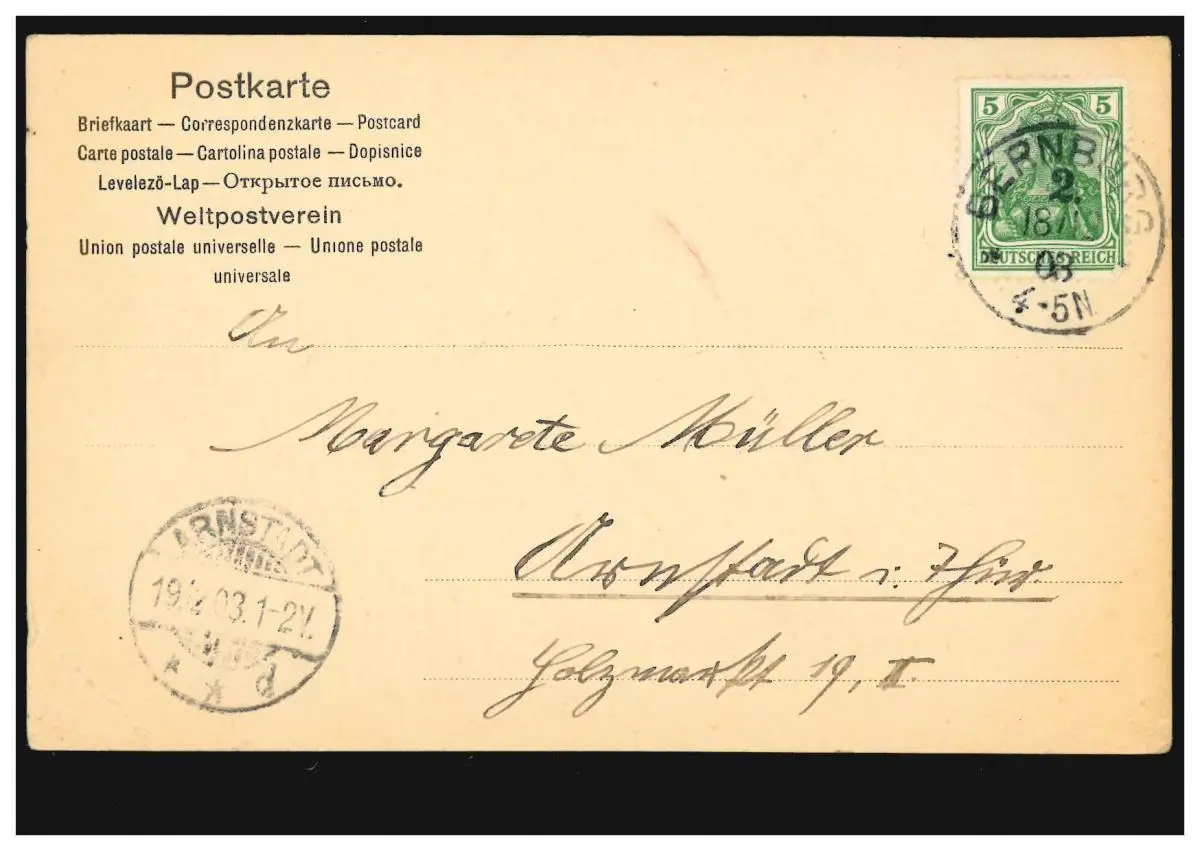 Postkarte
Briefkaart — Correspondenzkarte — Postcard
Carte postale — Cartolina postale — Dopisnice
Levelezö-Lap — Открытое письмо.
Weltpostverein
Union postale universelle — Unione postale
universale
5 5
DEUTSCHES REICH
BERNBURG
2.
18/
03
4-5N
An
Margarete Müller
Arnstadt i. Thür.
Holzmarkt 19, II.
ARNSTADT
19.2.03.1-2V.